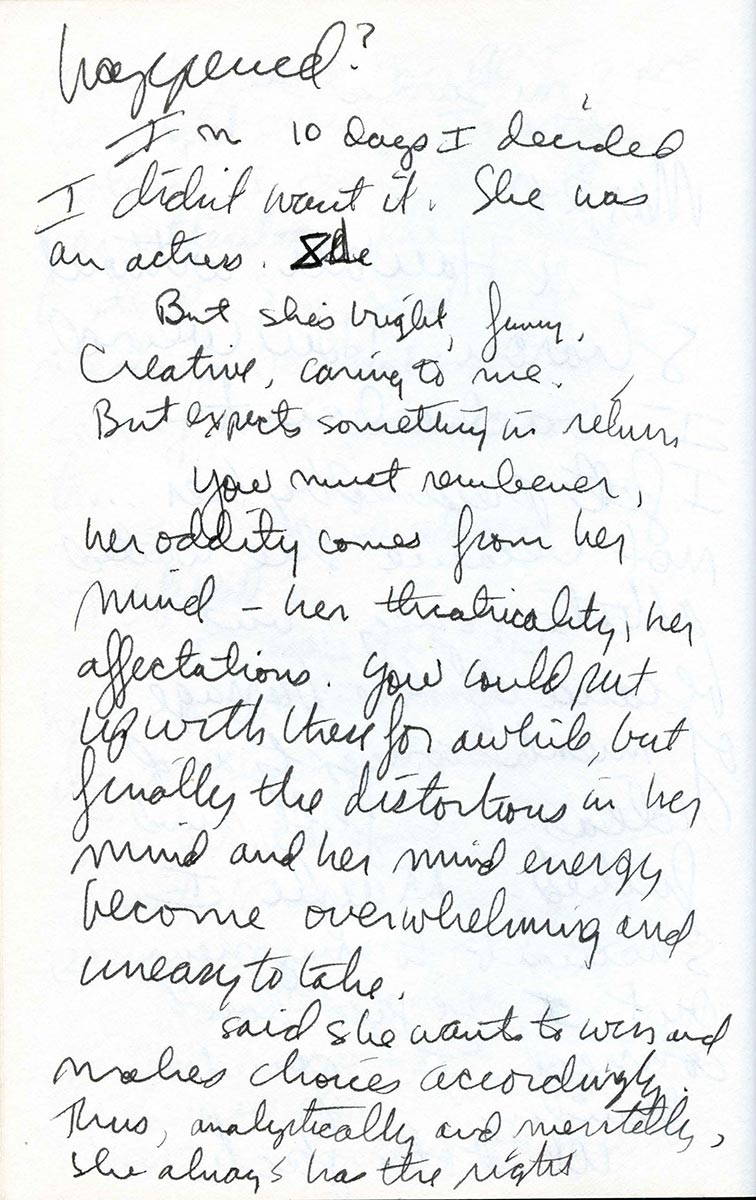 happened?
In 10 days I decided
I didn't want it. She was
an actress. She
But she's bright, funny,
Creative, caring to me.
But expects something in return
You must remember,
her oddity comes from her
mind – her theatricality, her
affectations. You could put
up with these for awhile, but
finally the distortions in her
mind and her mind energy
become overwhelming and
uneasy to take.
said she wants to win and
makes choices accordingly.
Thus, analytically and mentally,
she always has the right